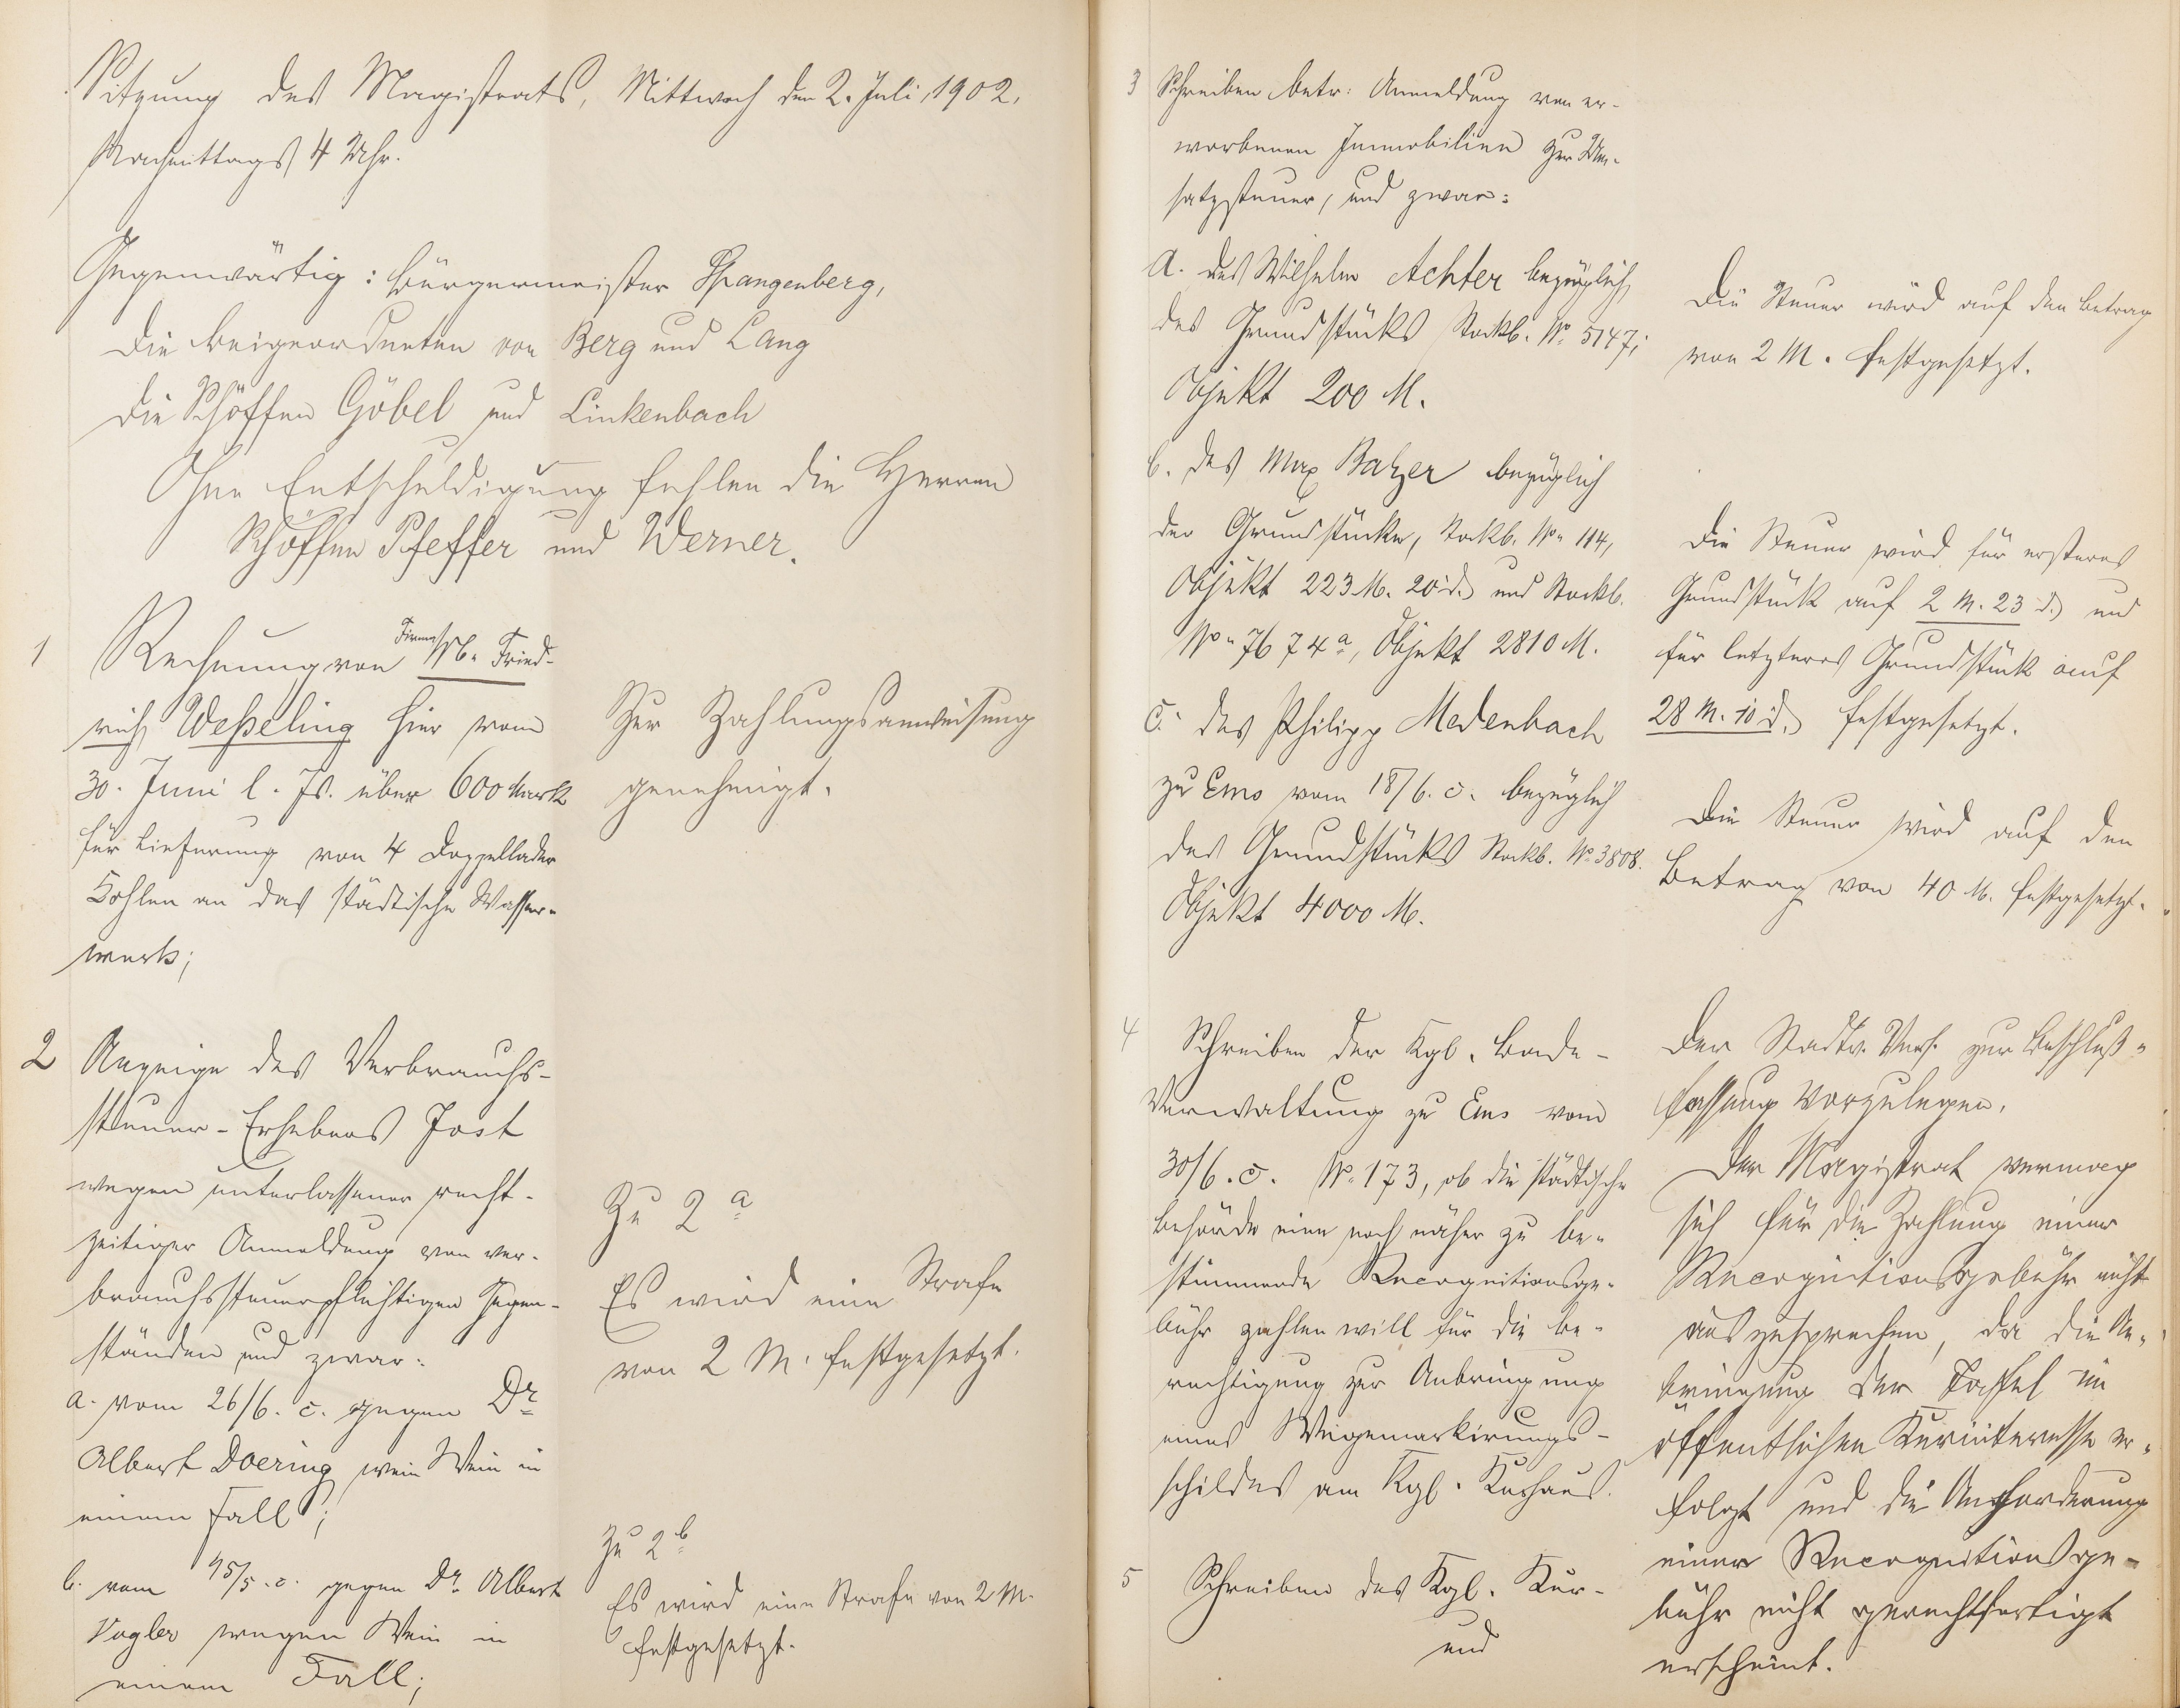 Sitzung des Magistrats, Mittwoch den 2. Juli 1902.
Nachmittags 4 Uhr.
Gegenwärtig: Bürgermeister Spangenberg,
die Beigeordneten von Berg und Lang
die Schöffen Göbel und Linkenbach
Ohne Entschuldigung fehlen die Herren
Schöffen Pfeffer und Werner.
1 Rechnung von Firma W. Fried-
rich Weßeling hier vom
30. Juni l. Js. über 600 Mark
für Lieferung von 4 Doppellader
Kohlen an das städtische Wasser-
werk;
Zur Zahlungsanweisung
genehmigt.
2 Anzeige des Verbrauchs-
steuer-Erhebers Jost
wegen unterlassener recht-
zeitiger Anmeldung von ver-
brauchssteuerpflichtigen Gegen-
ständen und zwar:
a. vom 26/6. c. gegen Dr.
Albert Doering, wein Wein in
einem Fall;
b. vom 15/5. c. gegen Dr. Albert
Vogler wegen Wein in
einem Fall;
Zu 2a
Es wird eine Strafe
von 2 M. festgesetzt.
Zu 2b
Es wird eine Strafe von 2 M.
festgesetzt.
3 Schreiben betr: Anmeldung von er-
worbenen Immobilien zur Um-
satzsteuer, und zwar:
a. des Wilhelm Achter bezüglich
des Grundstücks Stockb. No. 5147;
Objekt 200 M.
Die Steuer wird auf den Betrag
von 2 M. festgesetzt.
b. des Max Balzer bezüglich
der Grundstücke, Stockb. No. 114,
Objekt 223 M. 20 d. und Stockb.
No. 7674a, Objekt 2810 M.
Die Steuer wird für ersteres
Grundstück auf 2 M. 23 d. und
für letzteres Grundstück auf
28 M. 10 d. festgesetzt.
c. des Philipp Medenbach
zu Ems vom 18/6. c. bezüglich
des Grundstücks Stockb. No. 3808.
Objekt 4000 M.
Die Steuer wird auf den
Betrag von 40 M. festgesetzt.
4 Schreiben der Kgl. Bade-
Verwaltung zu Ems vom
30/6. c. No. 173, ob die städtische
Behörde eine noch näher zu be-
stimmende Recognitionsge-
bühr zahlen will für die Be-
rechtigung zur Anbringung
eines Wegemarkirungs-
schildes am Kgl. Kurhaus.
Der Stadtv. Vers. zur Beschluß-
fassung vorzulegen.
Der Magistrat vermag
sich für die Zahlung einer
Recognitionsgebühr nicht
auszusprechen, da die An-
bringung der Tafel im
öffentlichen Kurinteresse er-
folgt und die Anforderung
einer Recognitionsge-
bühr nicht gerechtfertigt
erscheint.
5 Schreiben des Kgl. Kur-
und